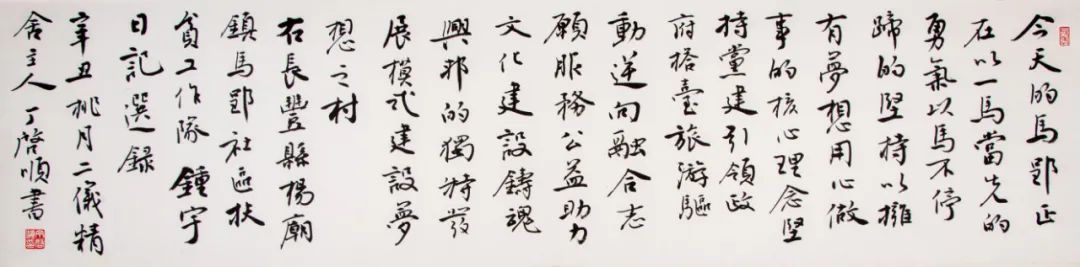 今天的馬郢正
在以一馬當先的
勇氣以馬不停
蹄的堅持以擁
有夢想用心做
事的核心理念堅
持黨建引領政
府搭臺旅游驅
動逆向融合志
願服務公益助力
文化建設鑄魂
興邦的獨特發
展模式建設夢
想之村
右長豐縣楊廟
鎮馬郢社區扶
貧工作隊鍾宇
日記選録
辛丑桃月二儀精
舍主人丁啓順書